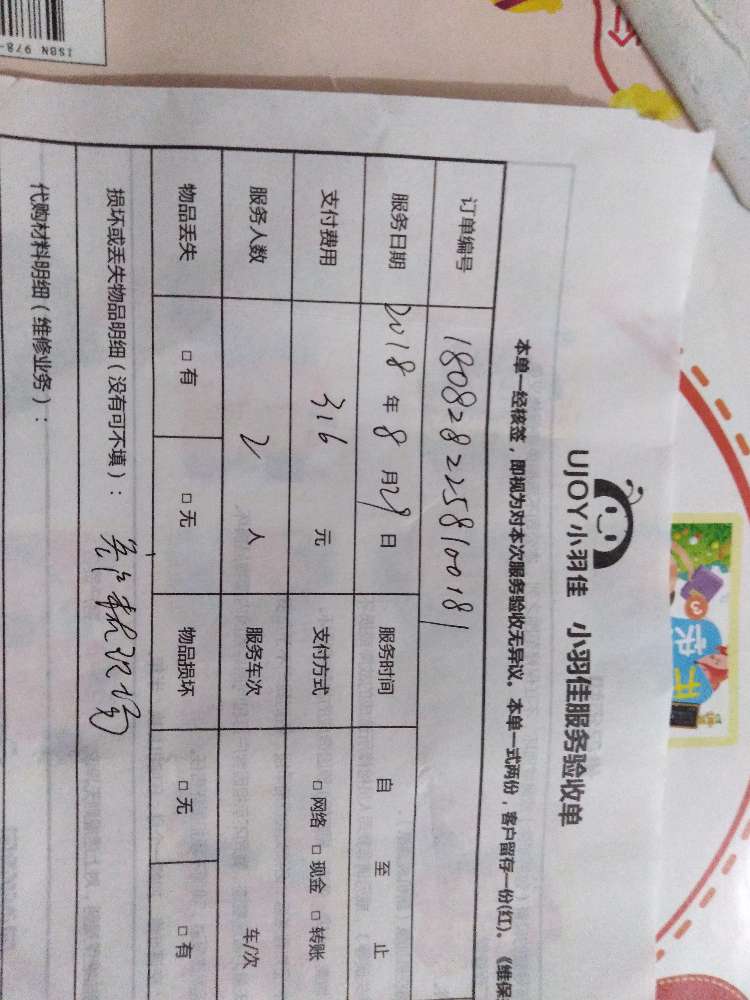 UJOY小羽佳 小羽佳服务验收单
本单一经核签，即视为对本次服务验收无异议。本单一式两份，客户留存一份(红)。《维保
订单编号 1808282258100181
服务日期 2018年8月29日 服务时间 自 至 止
支付费用 316元 支付方式 □网络 □现金 □转账
服务人数 2人 服务车次 车/次
物品丢失 □有 □无 物品损坏 □无 □有
损坏或丢失物品明细（没有可不填）：
代购材料明细（维修业务）：
ISBN 978-
3
快
开